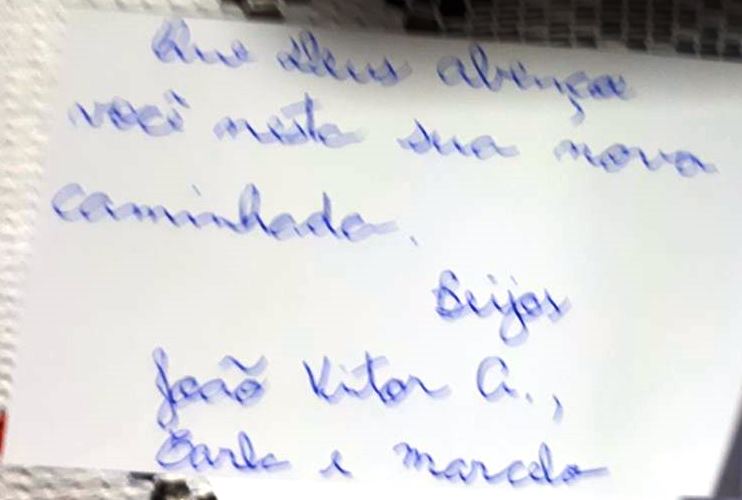 Que Deus abençoe
você nesta sua nova
caminhada.
Beijos
João Vitor G.,
Carla e Marcelo